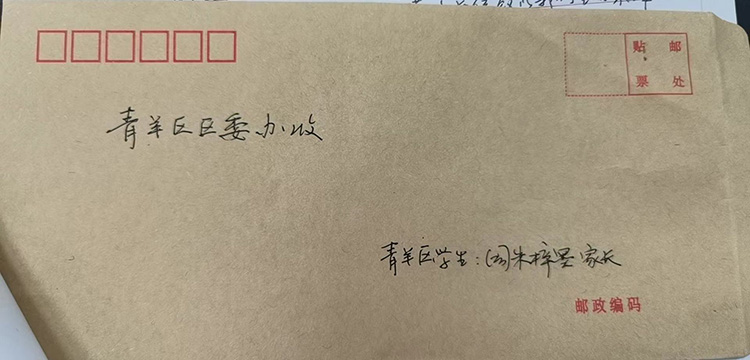 贴 邮
票 处
青羊区区委办收
青羊区学生:周朱梓墨家长
邮政编码